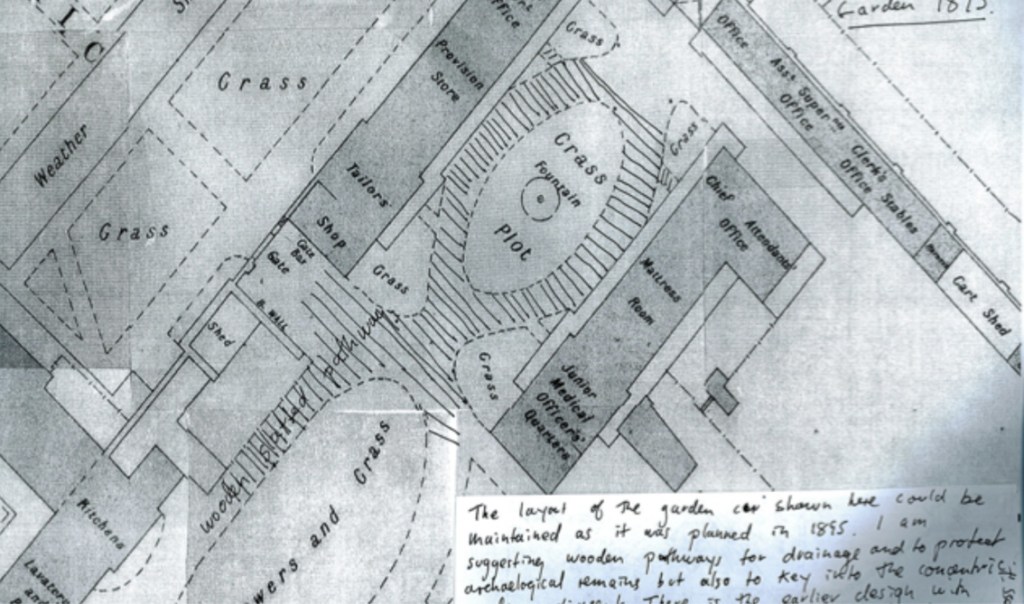 Garden 1895.
Office
Grass
Office
Ass't Super
Office
Clerk's
Office
Stables
Cart Shed
Provision
Store
Grass
Weather
Grass
Grass
Tailors
Shop
Grass
Fountain
Plot
Grass
Chief
Attendants
Office
Mattress
Room
Junior
Medical
Officers'
Quarters
Gate
Gate
Box
B. Wall
Shed
Grass
Grass
wooden slatted pathway
Grass
and
Kitchens
The layout of the garden as shown here could be
maintained as it was planned in 1895. I am
suggesting wooden pathways for drainage and to protect
archaelogical remains but also to key into the concentric
There is the earlier design with